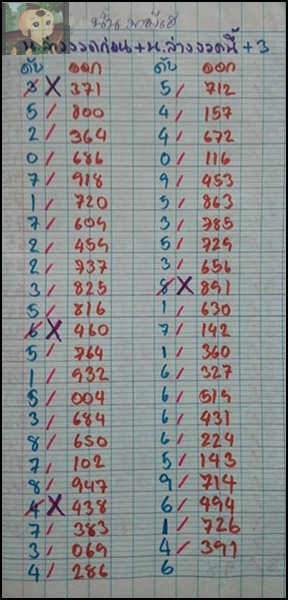 น.ล่างงวดก่อน+น.ล่างงวดนี้+3
ดับ ออก ดับ ออก
8 X 371 5 / 712
5 / 800 4 / 157
2 / 364 4 / 672
0 / 686 0 / 116
7 / 918 9 / 453
1 / 720 5 / 863
7 / 609 3 / 785
2 / 459 5 / 729
2 / 737 3 / 656
3 / 825 8 X 891
5 / 816 1 / 630
6 X 460 7 / 142
5 / 764 1 / 360
1 / 932 6 / 327
5 / 004 6 / 019
3 / 684 6 / 431
8 / 650 6 / 224
7 / 102 5 / 143
8 / 947 9 / 714
4 X 438 6 / 494
7 / 383 1 / 726
3 / 069 4 / 391
4 / 286 6